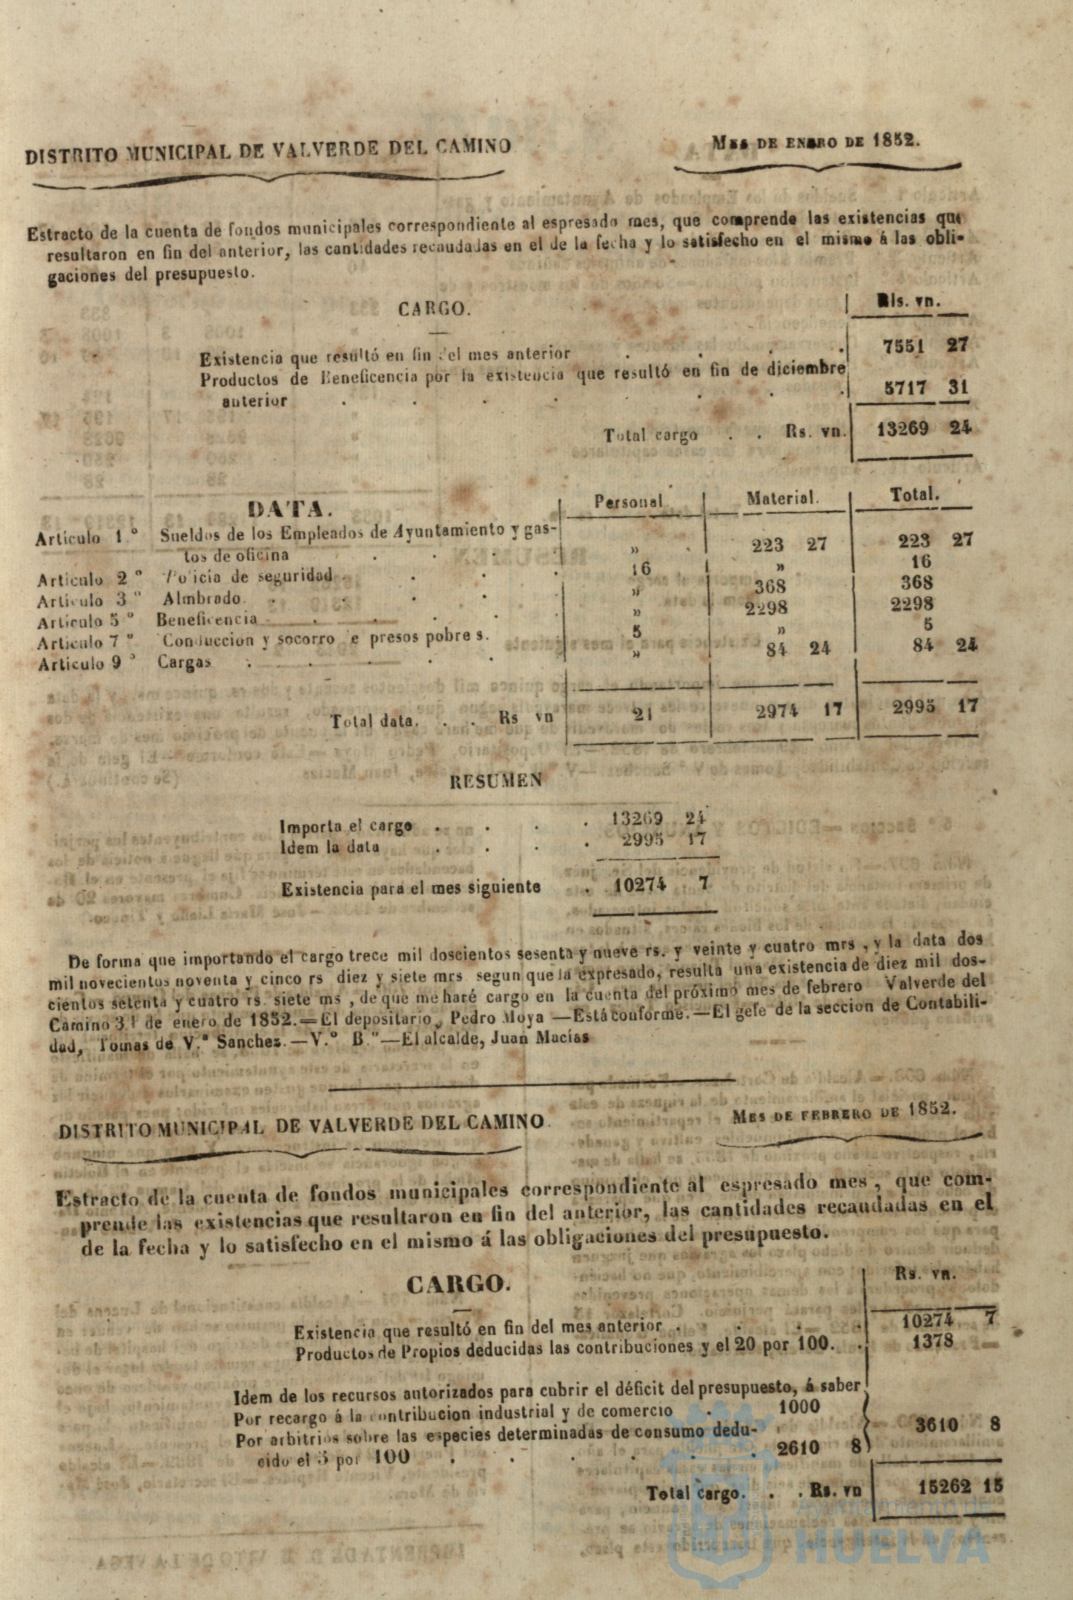 DISTRITO MUNICIPAL DE VALVERDE DEL CAMINO
MES DE ENERO DE 1852.
Estracto de la cuenta de fondos municipales correspondiente al espresado mes, que comprende las existencias que
resultaron en fin del anterior, las cantidades recaudadas en el de la fecha y lo satisfecho en el mismo á las obli-
gaciones del presupuesto.
CARGO. Rls. vn.
Existencia que resultó en fin del mes anterior . . . . 7551 27
Productos de Beneficencia por la existencia que resultó en fin de diciembre
anterior . . . . . . . 5717 31
Total cargo . . Rs. vn. 13269 24
DATA. Personal Material. Total.
Articulo 1.º Sueldos de los Empleados de Ayuntamiento y gas-
tos de oficina . . . » 223 27 223 27
Articulo 2º Policia de seguridad . . . 16 » 16
Articulo 3º Almbrado. . . . . » 368 368
Articulo 5º Beneficencia . . . . » 2298 2298
Articulo 7º Conduccion y socorro e presos pobres. 5 » 5
Articulo 9º Cargas . . . . . » 84 24 84 24
Total data. . . Rs vn 21 2974 17 2995 17
RESUMEN
Importa el cargo . . . . 13269 24
Idem la data . . . . 2995 17
Existencia para el mes siguiente . 10274 7
De forma que importando el cargo trece mil doscientos sesenta y nueve rs. y veinte y cuatro mrs, y la data dos
mil novecientos noventa y cinco rs diez y siete mrs segun que la expresado, resulta una existencia de diez mil dos-
cientos setenta y cuatro rs. siete ms, de que me haré cargo en la cuenta del próximo mes de febrero Valverde del
Camino 31 de enero de 1852.=El depositario, Pedro Moya—Está conforme.—El gefe de la seccion de Contabili-
dad, Tomas de V.ª Sanchez.—V.º B.º—El alcalde, Juan Macías
DISTRITO MUNICIPAL DE VALVERDE DEL CAMINO.
MES DE FEBRERO DE 1852.
Estracto de la cuenta de fondos municipales correspondiente al espresado mes, que com-
prende las existencias que resultaron en fin del anterior, las cantidades recaudadas en el
de la fecha y lo satisfecho en el mismo á las obligaciones del presupuesto.
CARGO. Rs. vn.
Existencia que resultó en fin del mes anterior . . . . 10274 7
Productos de Propios deducidas las contribuciones y el 20 por 100. . 1378
Idem de los recursos autorizados para cubrir el déficit del presupuesto, á saber
Por recargo á la contribucion industrial y de comercio . 1000
Por arbitrios sobre las especies determinadas de consumo dedu- 3610 8
cido el 5 por 100 . . . . . . 2610 8
Total cargo. . . Rs. vn 15262 15
Ayuntamiento de
HUELVA